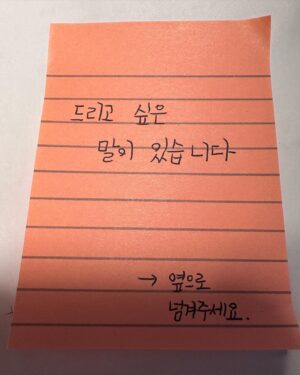 드리고 싶은
말이 있습니다
→ 옆으로
넘겨주세요.